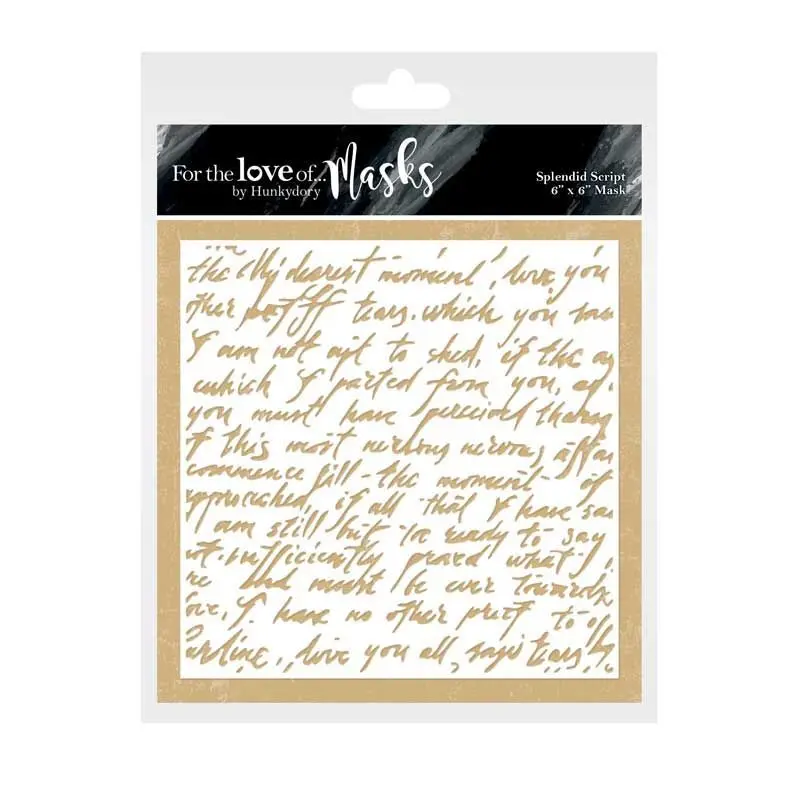 For the love of... Masks
by Hunkydory
Splendid Script
6" x 6" Mask
the My dearest moment, love you
other tears. which you
I am not apt to shed, if the
which I parted from you,
you must have perceived
of this most nervous
commence till - the moment of
approached, if all that I have
am still but to ready to say
sufficiently proved what
and must be ever towards
love, I have no other
love you all, says tears